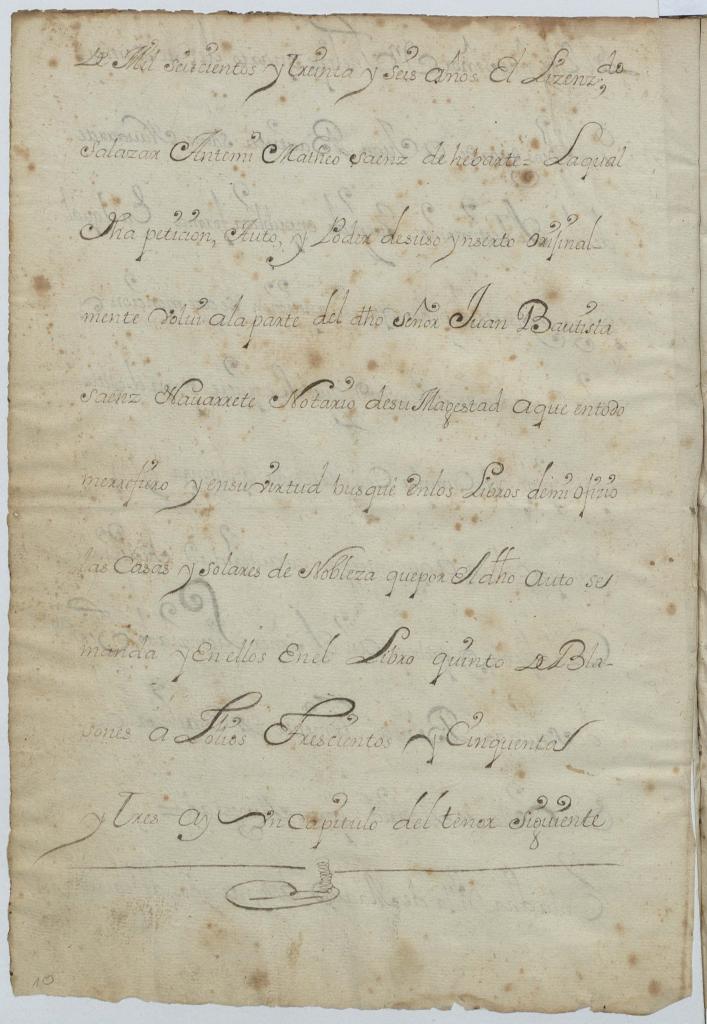 De Mil seiscientos y Treinta y seis años El Lizenz.do
Salazar Antemi Matheo saenz de hebarte = Laqual
dha peticion, Auto, y Poder desuso ynserto orijinal-
mente volvi ala parte del dho señor Juan Bautista
saenz Navarrete Notario desu Magestad aque entodo
merrefiero y ensu virtud busque enlos Libros demi ofizio
las Casas y solares de Nobleza quepor El dho auto se
manda y En ellos Enel Libro quinto De Bla-
sones a Folios Trescientos y Cinquenta
y Tres ay un capitulo del tenor siguiente
10